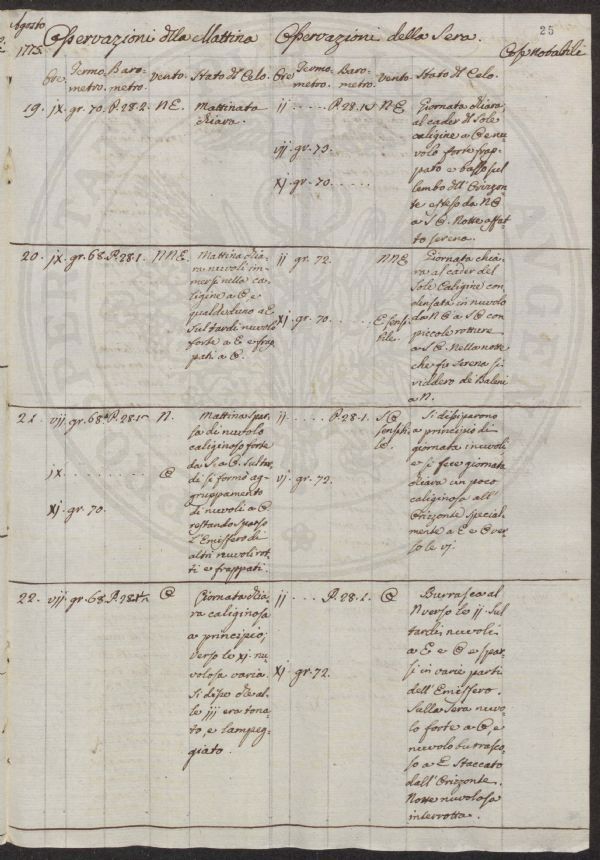 25
Agosto
1775.
Osservazioni dlla Mattina
Osservazioni della Sera.
Cose Notabili
Ore. Termo- metro. Baro- metro. vento. Stato dl Celo.
Ore Termo- metro. Baro- metro. vento. Stato dl Celo.
19. jx. gr. 70. P. 28.2. NE.
Mattinata
chiara.
ij ..... P. 28.1 NE
vij. gr. 73.
xj. gr. 70. .....
Giornata chiara,
al cader dl Sole
caligine a O e nu-
volo forte frap-
pato e basso sul
lembo dll' Orizzon-
te esteso da NO
a SO. Notte affat-
to serena.
20. jx. gr. 68. P. 28.1. NNE.
Mattina chia-
ra nuvoli im-
mersi nella ca-
ligine a O e
qualcheduno a E
Sul tardi nuvolo
forte a E e frap-
pati a O.
ij gr. 72. NNE
xj. gr. 70. ..... E sensi-
bile.
Giornata chia-
ra al cader del
Sole Caligine con-
densata in nuvolo
da NO a SO con
piccole rotture
a SO. Nella notte
che fu Serena si
viddero de' Baleni
a N.
21. vij. gr. 68. P. 28.1 N.
jx ........ O
xj. gr. 70.
Mattina spar-
sa di nuvolo
caliginoso forte
da S a O. Sul tar-
di si formò ag-
gruppamento
di nuvoli a O.
restando sparso
l'Emisfero di
altri nuvoli rot-
ti e frappati.
ij ..... P. 28.1. SO
sensibi-
le.
vj. gr. 72.
Si dissiparono
a principio di
giornata i nuvoli
e si fece giornata
chiara un poco
caliginosa all'
Orizzonte special-
mente a E e O ver-
so le vj.
22. vij. gr. 68. P. 28.1 O
Giornata chia-
ra caliginosa
a principio;
verso le xj. nu-
volosa varia.
Si disse che al-
le iij era tona-
to, e lampeg-
giato.
ij ... P. 28.1. O
xj. gr. 72.
Burrasca al
N verso le ij. Sul
tardi nuvoli
a E e O e spar-
si in varie parti
dell'Emisfero.
Sulla Sera nuvo-
lo forte a O, e
nuvolo burrasco-
so a E Staccato
dall'Orizzonte.
Notte nuvolosa
interrotta.